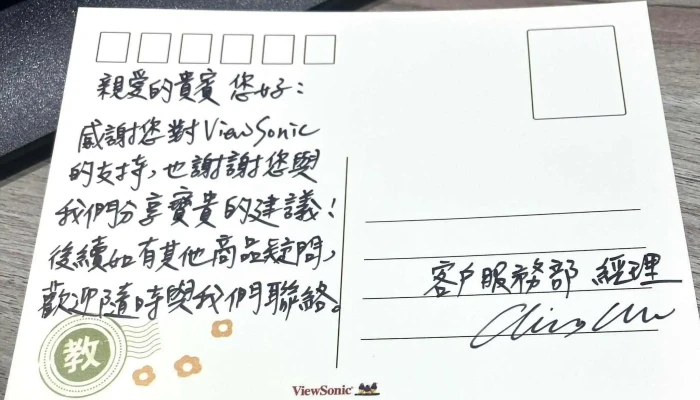 親愛的貴賓 您好：
感謝您對ViewSonic
的支持，也謝謝您與
我們分享寶貴的建議！
後續如有其他商品疑問，
歡迎隨時與我們聯絡。
客戶服務部 經理
教
ViewSonic